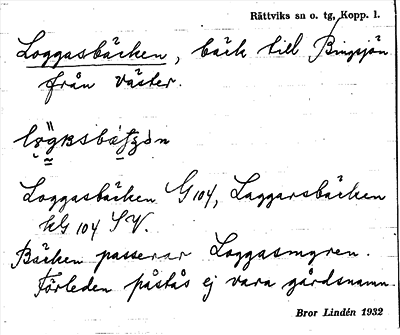 Rättviks sn o. tg, Kopp. l.
Loggasbäcken, bäck till Bingsjön
från väster.
Loggasbäcken G 104, Laggarsbäcken
hG 104 SV.
Bäcken passerar Loggasmyren.
Förleden påstås ej vara gårdsnamn.
Bror Lindén 1932